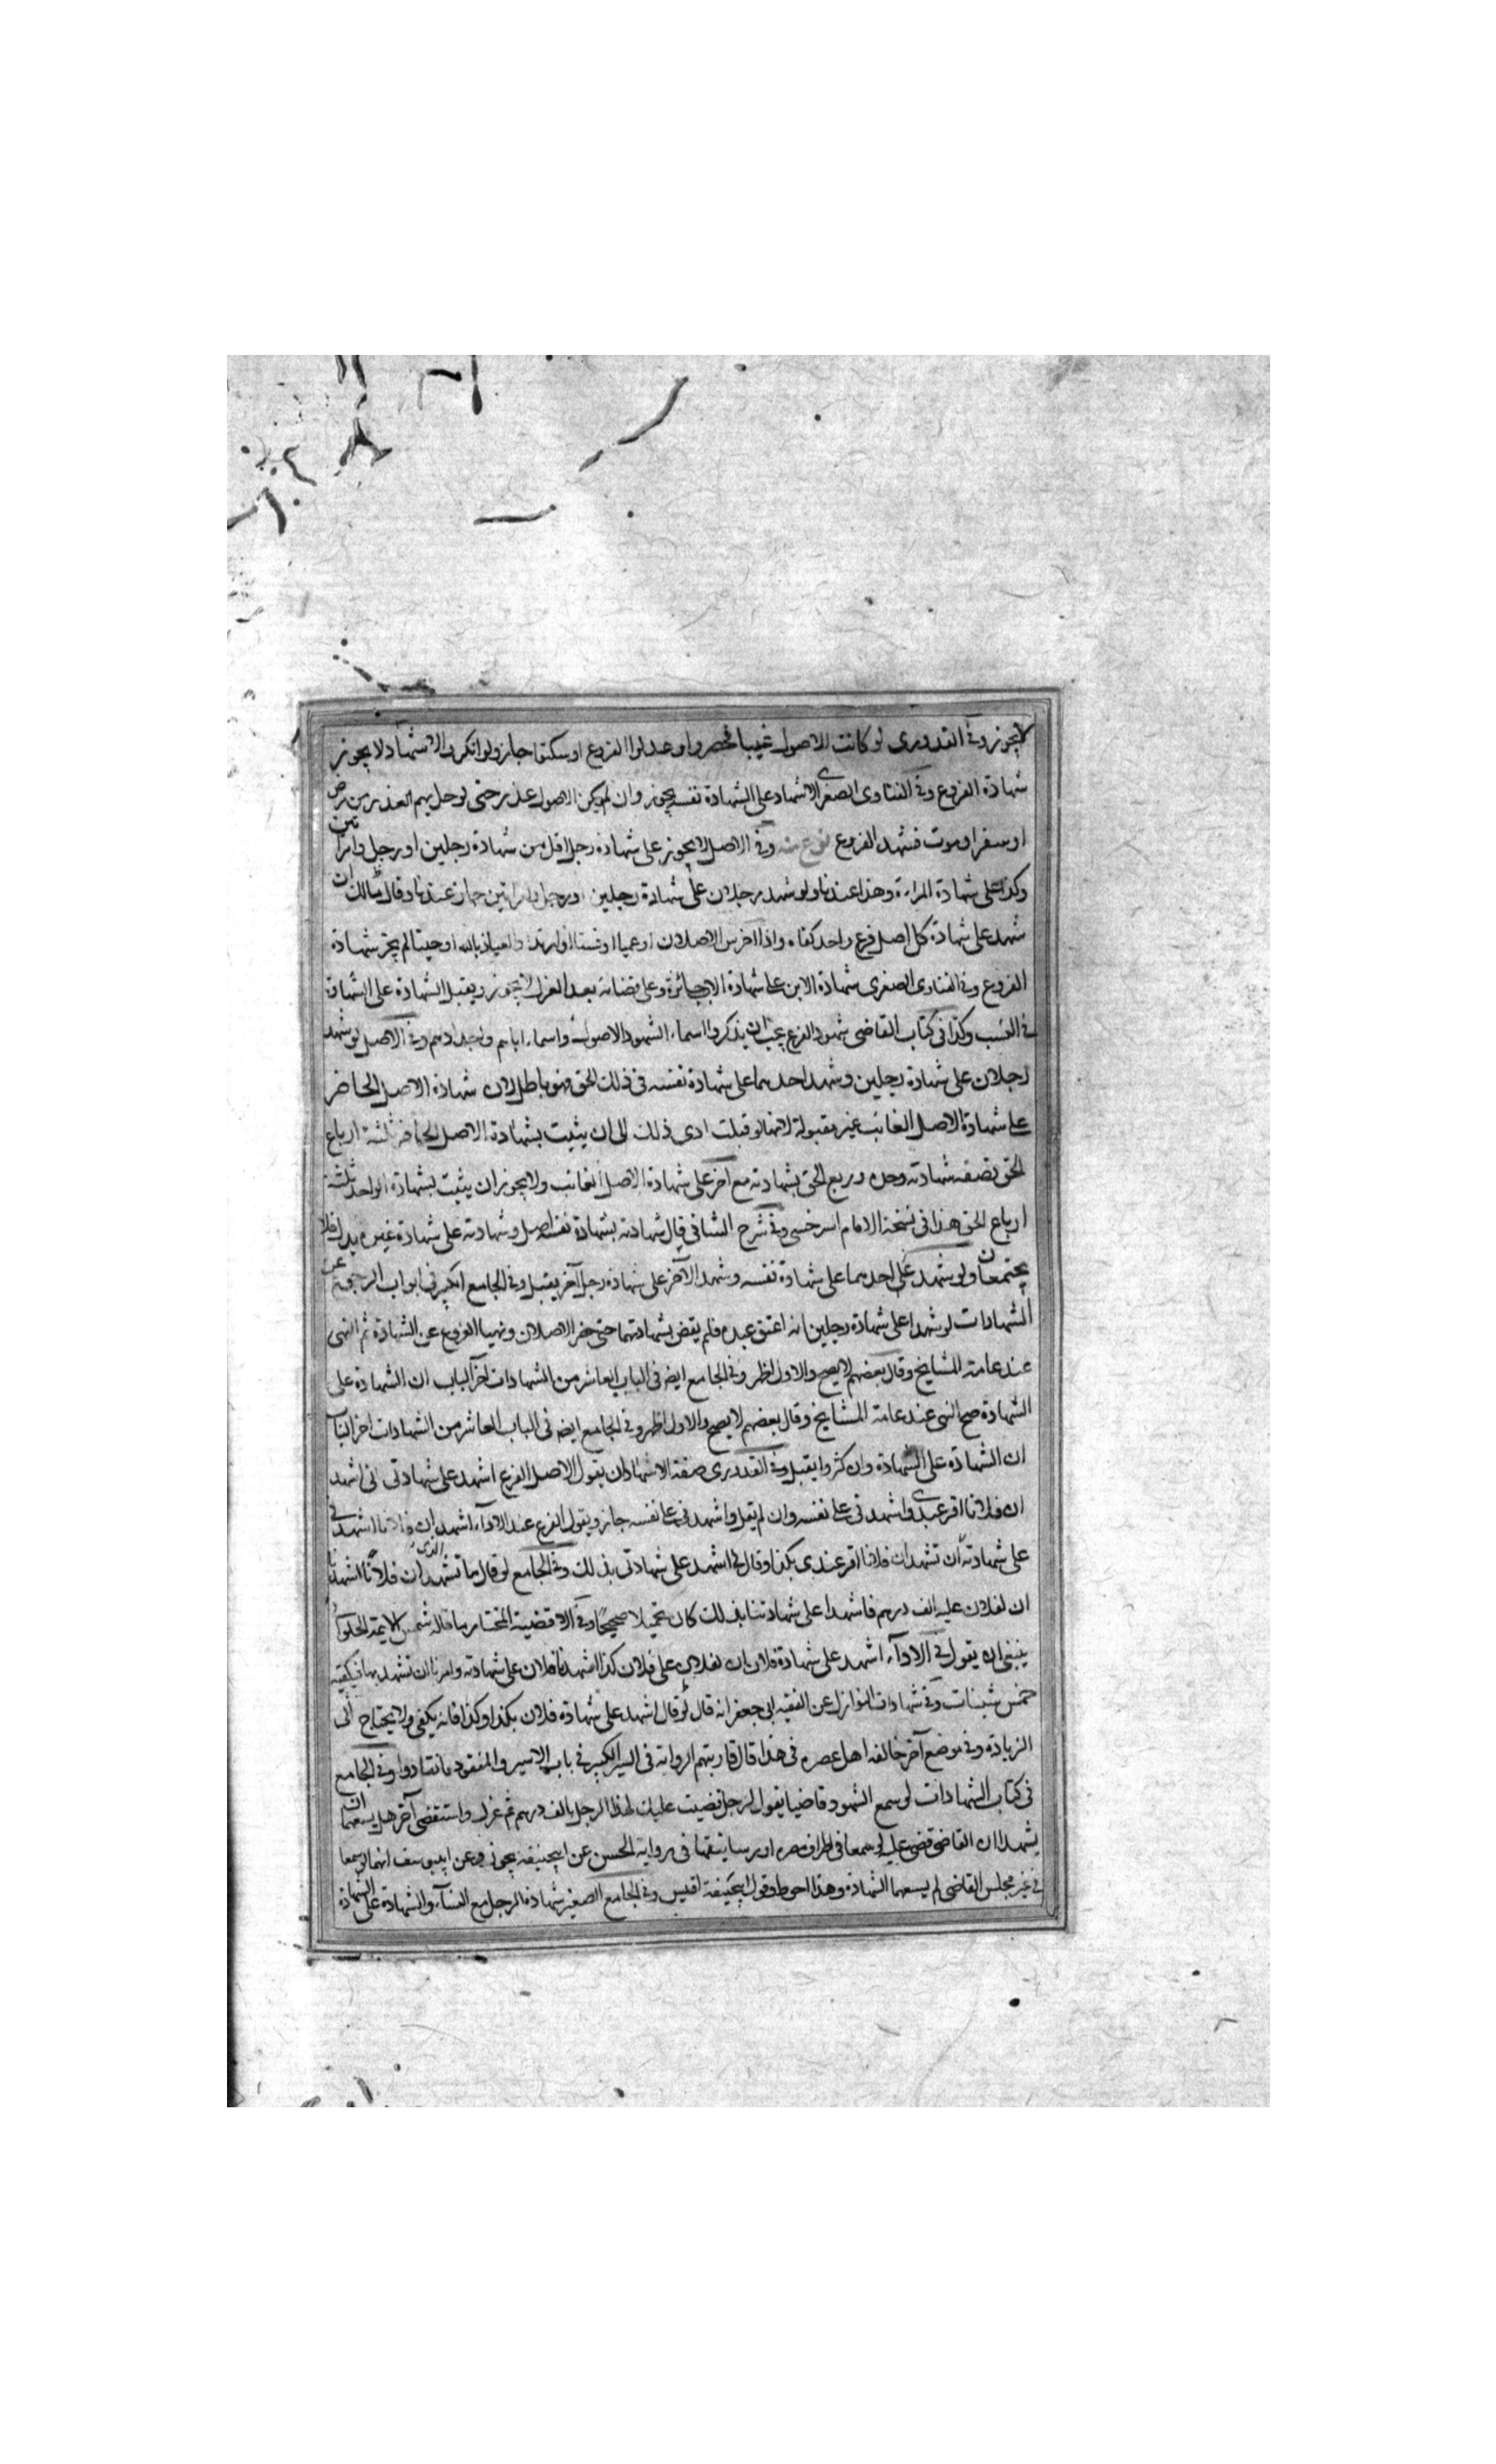 لا يجوز وفي القدوري لو كانت الاصول غيبا فحضروا وعدلوا الفروع او سكتوا جاز ولو انكروا الاشهاد لا يجوز
شهادة الفروع وفي الفتاوى الصغرى الاشهاد على الشهادة نفسه يجوز وان لم يكن الاصول عذر حتى لو حل بهم العذر من مرض
او سفر او موت فشهد الفروع نوع منه وفي الاصل لا يجوز على شهادة رجل اقل من شهادة رجلين او رجل وامراتين
وكذا على شهادة المراة وهذا عندنا ولو شهد رجلان على شهادة رجلين او رجل وامراتين جاز عندنا وقال مالك ان
شهد على شهادة كل اصل فرع واحد كفاه واذا اخرس الاصلان او عميا او فسقا او ارتدا والعياذ بالله او جنا لم يجز شهادة
الفروع وفي الفتاوى الصغرى شهادة الابن على شهادة الاب جائزة وعلى قضائه بعد العزل لا يجوز ويقبل الشهادة على الشهادة
في النسب وكذا في كتاب القاضي شهود الفرع يجب ان يذكروا اسماء الشهود الاصول واسماء اباهم واجدادهم وفي الاصل لو شهد
رجلان على شهادة رجلين وشهد احدهما على شهادة نفسه في ذلك الحق فهو باطل لان شهادة الاصل الحاضر
على شهادة الاصل الغائب غير مقبولة لانها لو قبلت ادى ذلك الى ان يثبت بشهادة الاصل الحاضر ثلثة ارباع
الحق نصفه شهادته وحده وربع الحق بشهادته مع اخر على شهادة الاصل الغائب ولا يجوز ان يثبت بشهادة الواحد ثلثة
ارباع الحق هذا في نسخة الامام السرخسي وفي شرح الشافي قال شهادته بشهادة نفسه اصل وشهادته على شهادة غيره بدل فلا
يجتمعان ولو شهد على احدهما على شهادة نفسه وشهد الآخر على شهادة رجل آخر يقبل وفي الجامع الكبير في ابواب الرجوع عن
الشهادات لو شهدا على شهادة رجلين انه اعتق عبده فلم يقض بشهادتهما حتى حضر الاصلان ونهيا الفروع عن الشهادة ثم النهي
عند عامة المشايخ وقال بعضهم لا يصح والاول اظهر وفي الجامع ايضا في الباب العاشر من الشهادات اخر الباب ان الشهادة على
الشهادة صح النهي عند عامة المشايخ وقال بعضهم لا يصح والاول اظهر وفي الجامع ايضا في الباب العاشر من الشهادات اخر الباب
ان الشهادة على الشهادة وان كثروا يقبل وفي القدوري صفة الاشهاد ان يقول الاصل الفرع اشهد على شهادتي اني اشهد
ان فلانا اقر عندي واشهدني على نفسه وان لم يقل واشهدني على نفسه جاز ويقول الفرع عند الاداء اشهد ان فلانا اشهدني
على شهادته ان تشهد ان فلانا اقر عندي بكذا وقال لي اشهد على شهادتي بذلك وفي الجامع لو قال ما تشهد ان فلانا اشهدنا
ان لفلان عليه الف درهم فاشهدا على شهادتنا بذلك كان تحميلا صحيحا وفي الاقضية المختار ما قاله شمس الايمة الحلواني
ينبغي ان يقول في الاداء اشهد على شهادة فلان ان لفلان على فلان كذا اشهدنا فلان على شهادته وامرنا ان نشهد بها فيكفيه
خمس شينات وفي شهادات النوازل عن الفقيه ابي جعفر انه قال لو قال اشهد على شهادة فلان بكذا وكذا فانه يكفي ولا يحتاج الى
الزيادة وفي موضع آخر خالفه اهل عصره في هذا قال الرواية في السير الكبير في باب الاسير والمفقود فانقادوا وفي الجامع
في كتاب الشهادات لو سمع الشهود قاضيا يقول لرجل قضيت عليك لهذا الرجل بالف درهم ثم عزل واستقضى آخر هل يسعهما ان
يشهدا ان القاضي قضى عليه لو سمعا في اطراف مصره او رساتيقها في رواية الحسن عن ابي حنيفة يجوز وعن ابي يوسف انهما لو سمعا
في غير مجلس القاضي لم يسعهما الشهادة وهذا احوط وقول ابي حنيفة اقيس وفي الجامع الصغير شهادة الرجل مع النساء والشهادة على الشهادة